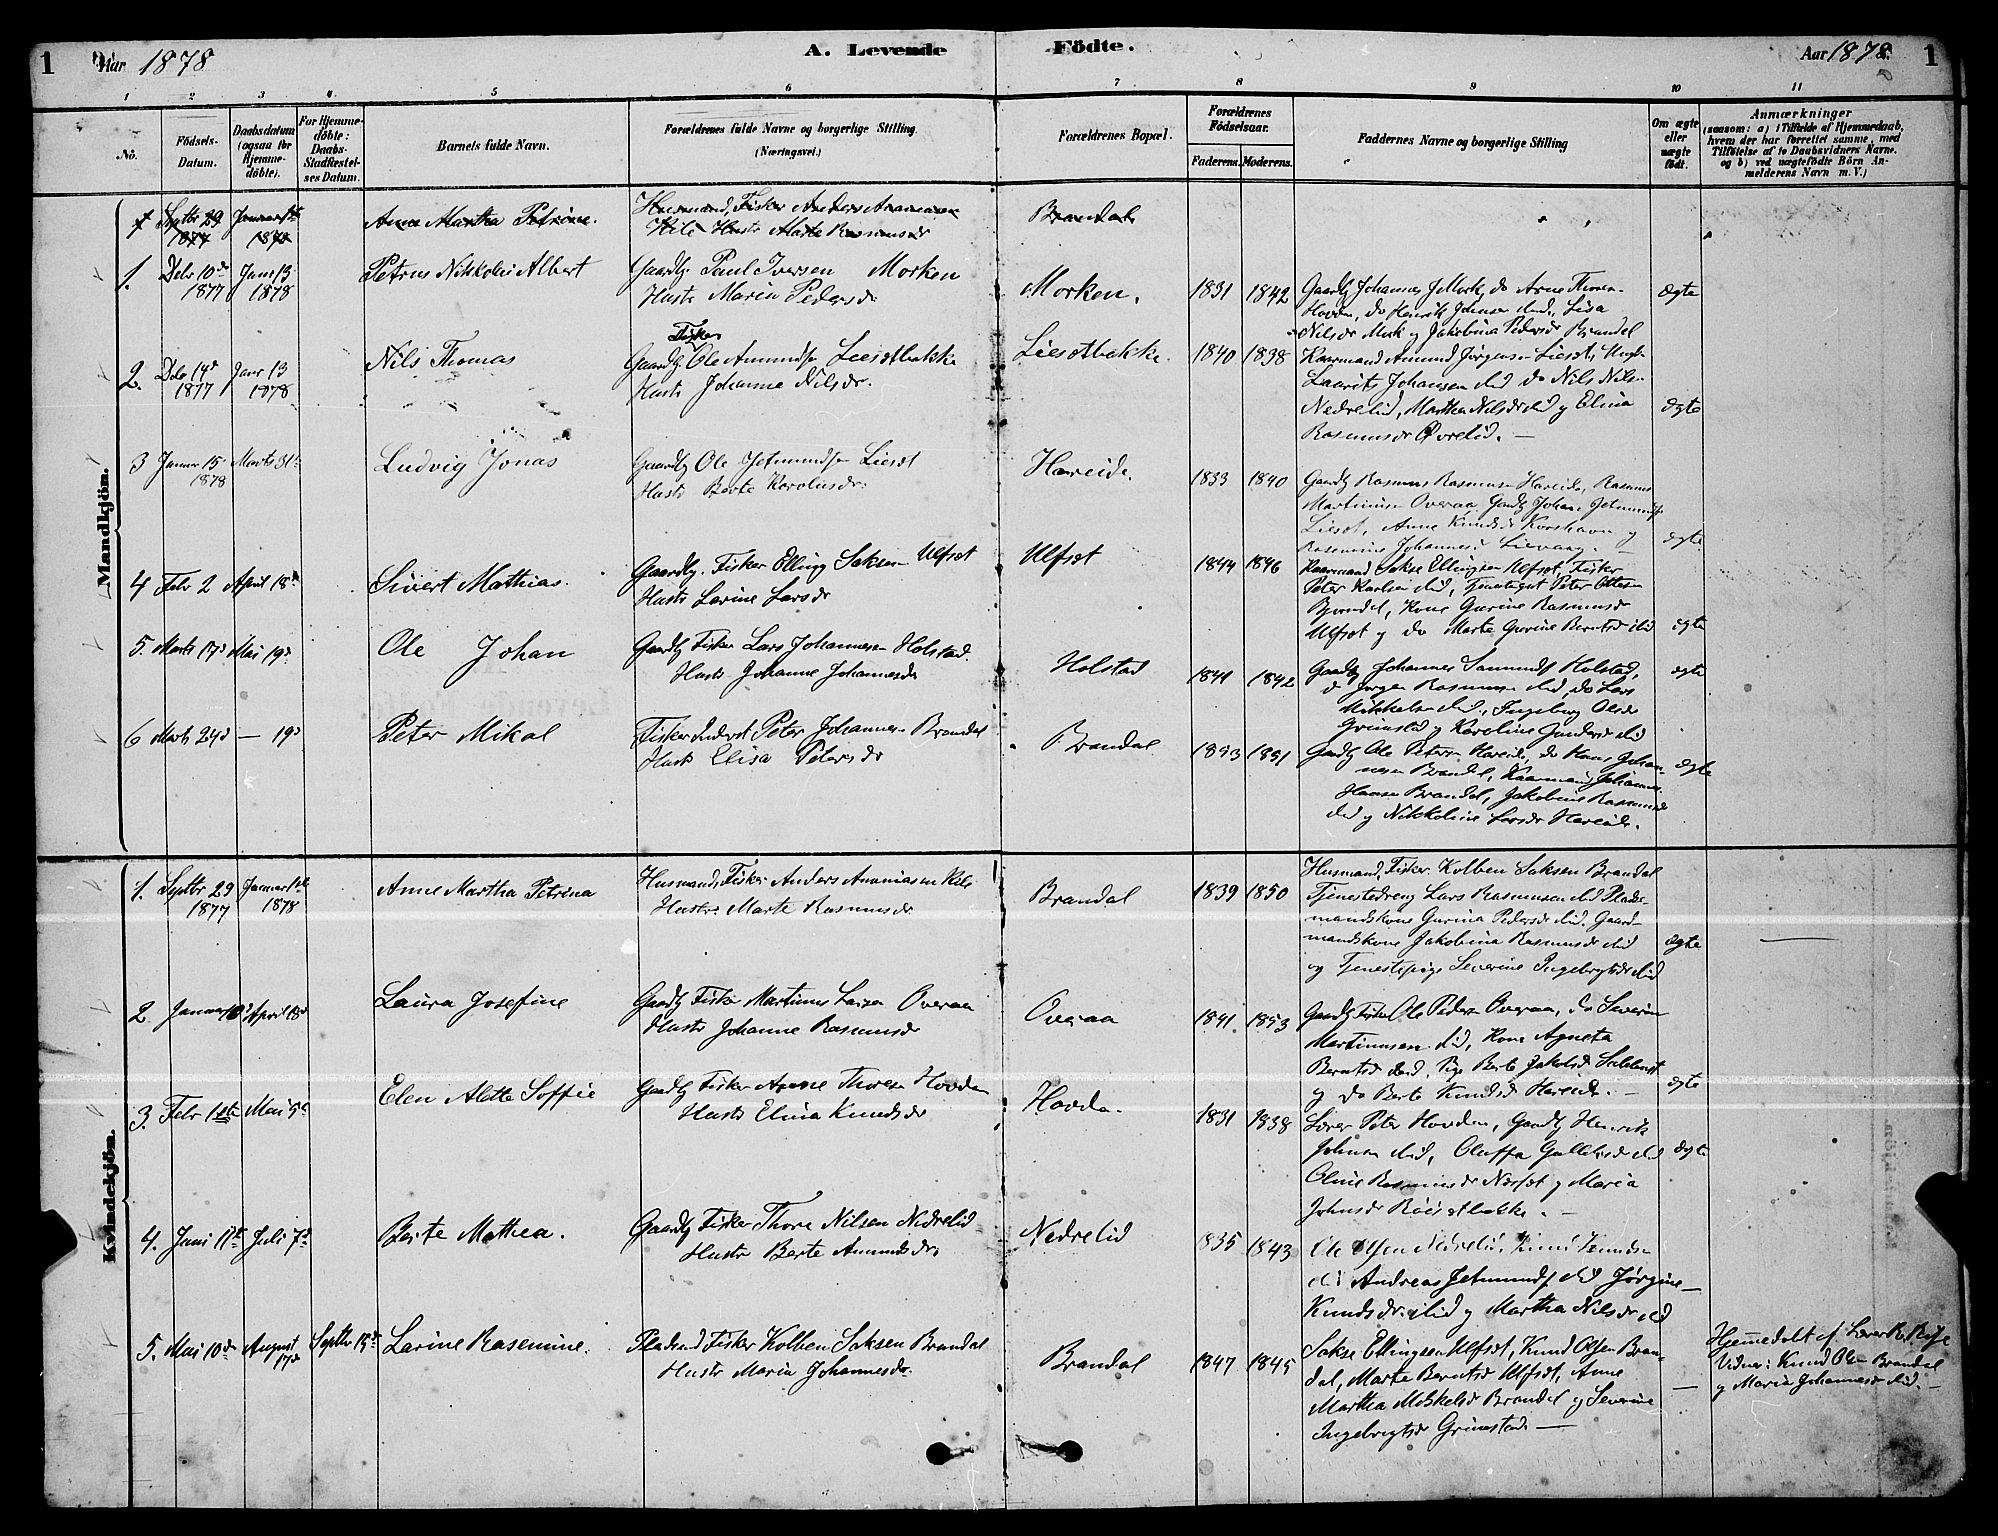 1 Aar 1878 A. Levende Födte. Aar 1878. 1
1 2 3 4 5 6 7 8 9 10 11
No.
Födsels-
Datum.
Daabsdatum
(ogsaa for
Hjemme-
döbte).
For Hjemme-
döbte:
Daabs-
Stadfæstel-
ses Datum.
Barnets fulde Navn.
Forældrenes fulde Navne og borgerlige Stilling.
(Næringsvei.)
Forældrenes Bopæl.
Forældrenes
Födselsaar.
Faderens. Moderens.
Faddernes Navne og borgerlige Stilling
Om ægte
eller
uægte
födt.
Anmærkninger
(saasom: a) i Tilfælde af Hjemmedaab,
hvem der har forrettet samme, med
Tilföielse af to Daabsvidners Navne.
og b) ved uægtefödte Börn An-
melderens Navn m. V.)
Mandkjön.
1 Septbr 29 1877
Januar 1878
Anne Martha Petrine.
Husmand, Fisker Anders Ananiasen
Hustr Marte Rasmusdr
Brandal
1. Debr 10de 1877
Janr 13 1878
Petrus Nikkolai Albert
Gaardbr. Paul Iversen Morken
Hustr Maria Pedersdr
Morken.
1831 1842
Gaardbr Johannes J Mork, do Arne Thoresen
Hovden, do Henrik Johnsen ibid, Lisa
Nilsdr Mork og Jakobina Pedersdr Brandal
ægte
2. Debr 14d 1877
Janr 13 1878
Nils Thomas
Fisker
Gaardbr. Ole Amundsen Liesetbakke
Hustr Johanne Nilsdr.
Liesetbakke.
1840 1838
Kaarmand Amund Jørgensen Lieset, Ungk.
Laurits Johansen ibid do Nils Nils-
Nedrelid, Martha Nilsdr ibid og Elina
Rasmusdr Øvrelid. —
ægte
3 Januar 15 1878
Marts 31te
Ludvig Jonas
Gaardbr Ole Jetmundsen Lieset
Hustr Berte Karolusdr.
Hareide.
1833 1840
Gaardbr Rasmus Rasmusen Hareide, Rasmus
Martinusen Overaa, Gaardbr Johan Jetmundsen
Lieset, Anne Knudsdr Korshavn og
Rasmine Johannesdr Lievaag. —
ægte
4 Febr 2 April 18de
Sivert Mathias.
Gaardbr. Fisker Elling Saksen Ulfset
Hustr Larine Larsdr
Ulfset
1844 1846
Kaarmand Sakse Ellingsen Ulfset, Fisker
Peter Karlsen ibid, Tjenestegut Peter Ottesen
Brandal, Kone Gurine Rasmusdr
Ulfset og do Marte Gurine Berntsdr ibid
ægte
5. Marts 17d Mai 19d
Ole Johan
Gaardbr Fisker Lars Johannesen Holstad.
Hustr Johanne Johannesdr
Holstad
1841 1842
Gaardbr Johannes Samundsen Holstad,
do Jørgen Rasmusen ibid, do Lars
Mikkelsen ibid, Ingeborg Olsdr
Grimstad og Karoline Gundersdr ibid
ægte
6 Marts 24d — 19d
Peter Mikal
Fisker Inderst Peter Johannesen Brandal
Hustr Elisa Petersdr
Brandal
1853 1851
Gaardbr Ole Petersen Hareide, do Hans Johan-
nesen Brandal, Kaarmand Johannes
Hansen Brandal, Jakobine Rasmusdr
ibid og Nikkoline Larsdr Hareide.
ægte
Kvindekjön.
1. Septbr 29 1877
Januar 1ste 1878
Anne Martha Petrina
Husmand, Fisker Anders Ananiasen Kile
Hustr. Marte Rasmusdr
Brandal
1839 1850
Husmand, Fisker Kolben Saksen Brandal
Tjenestedreng Lars Rasmusen ibid Plads-
mandskone Gurina Pedersdr ibid. Gaard-
mandskone Jakobina Rasmusdr ibid
og Tjenestepige Severine Ingebrigtsdr ibid
ægte —
2 Januar 10d April 18d
Laura Josefine
Gaardbr Fisker Martinus Larsen Overaa
Hustr Johanne Rasmusdr
Overaa
1841. 1853
Gaardbr Fisker Ole Pedersen Overaa, do Severin
Martinusen ibid, Kone Agneta
Berntsdr ibid, Pige Berte Jakobsdr
og do Berte Knudsdr Hareide. —
ægte
3. Febr 1ste Mai 5te
Elen Alette Soffie
Gaardbr Fisker Arne Thoresen Hovden
Hustr Elina Knudsdr
Hovden.
1831 1838
Lærer Peter Hovden, Gaardbr Henrik
Johnsen ibid, Oluffa ibid
Oline Rasmusdr og Maria
Johnsdr Röisetbakke. —
ægte
4. Juni 11te Juli 7d
Berte Mathea.
Gaardbr Fisker Thore Nilsen Nedrelid
Hustr Berte Amundsdr.
Nedrelid
1835 1843
Ole Olsen Nedrelid, Knud Knudsen
ibid Andreas Jetmundsen ibid Jørgine
Knudsdr ibid og Martha Nilsdr ibid
5. Mai 10de August 17de Septbr 15de
Larine Rasmine.
Pladsmd Fisker Kolben Saksen Brandal
Hustr Maria Johannesdr
Brandal
1847 1845
Sakse Ellingsen Ulfset, Knud Olsen Bran-
dal, Marte Berntsdr Ulfset, Anne
Martha Mikkelsdr Brandal og Severine
Ingebrigtsdr Grimstad —
—
Hjemmedøbt af Lærer R. Rise
Vidner: Knud Olsen Brandal
og Maria Johannesdr ibid. —